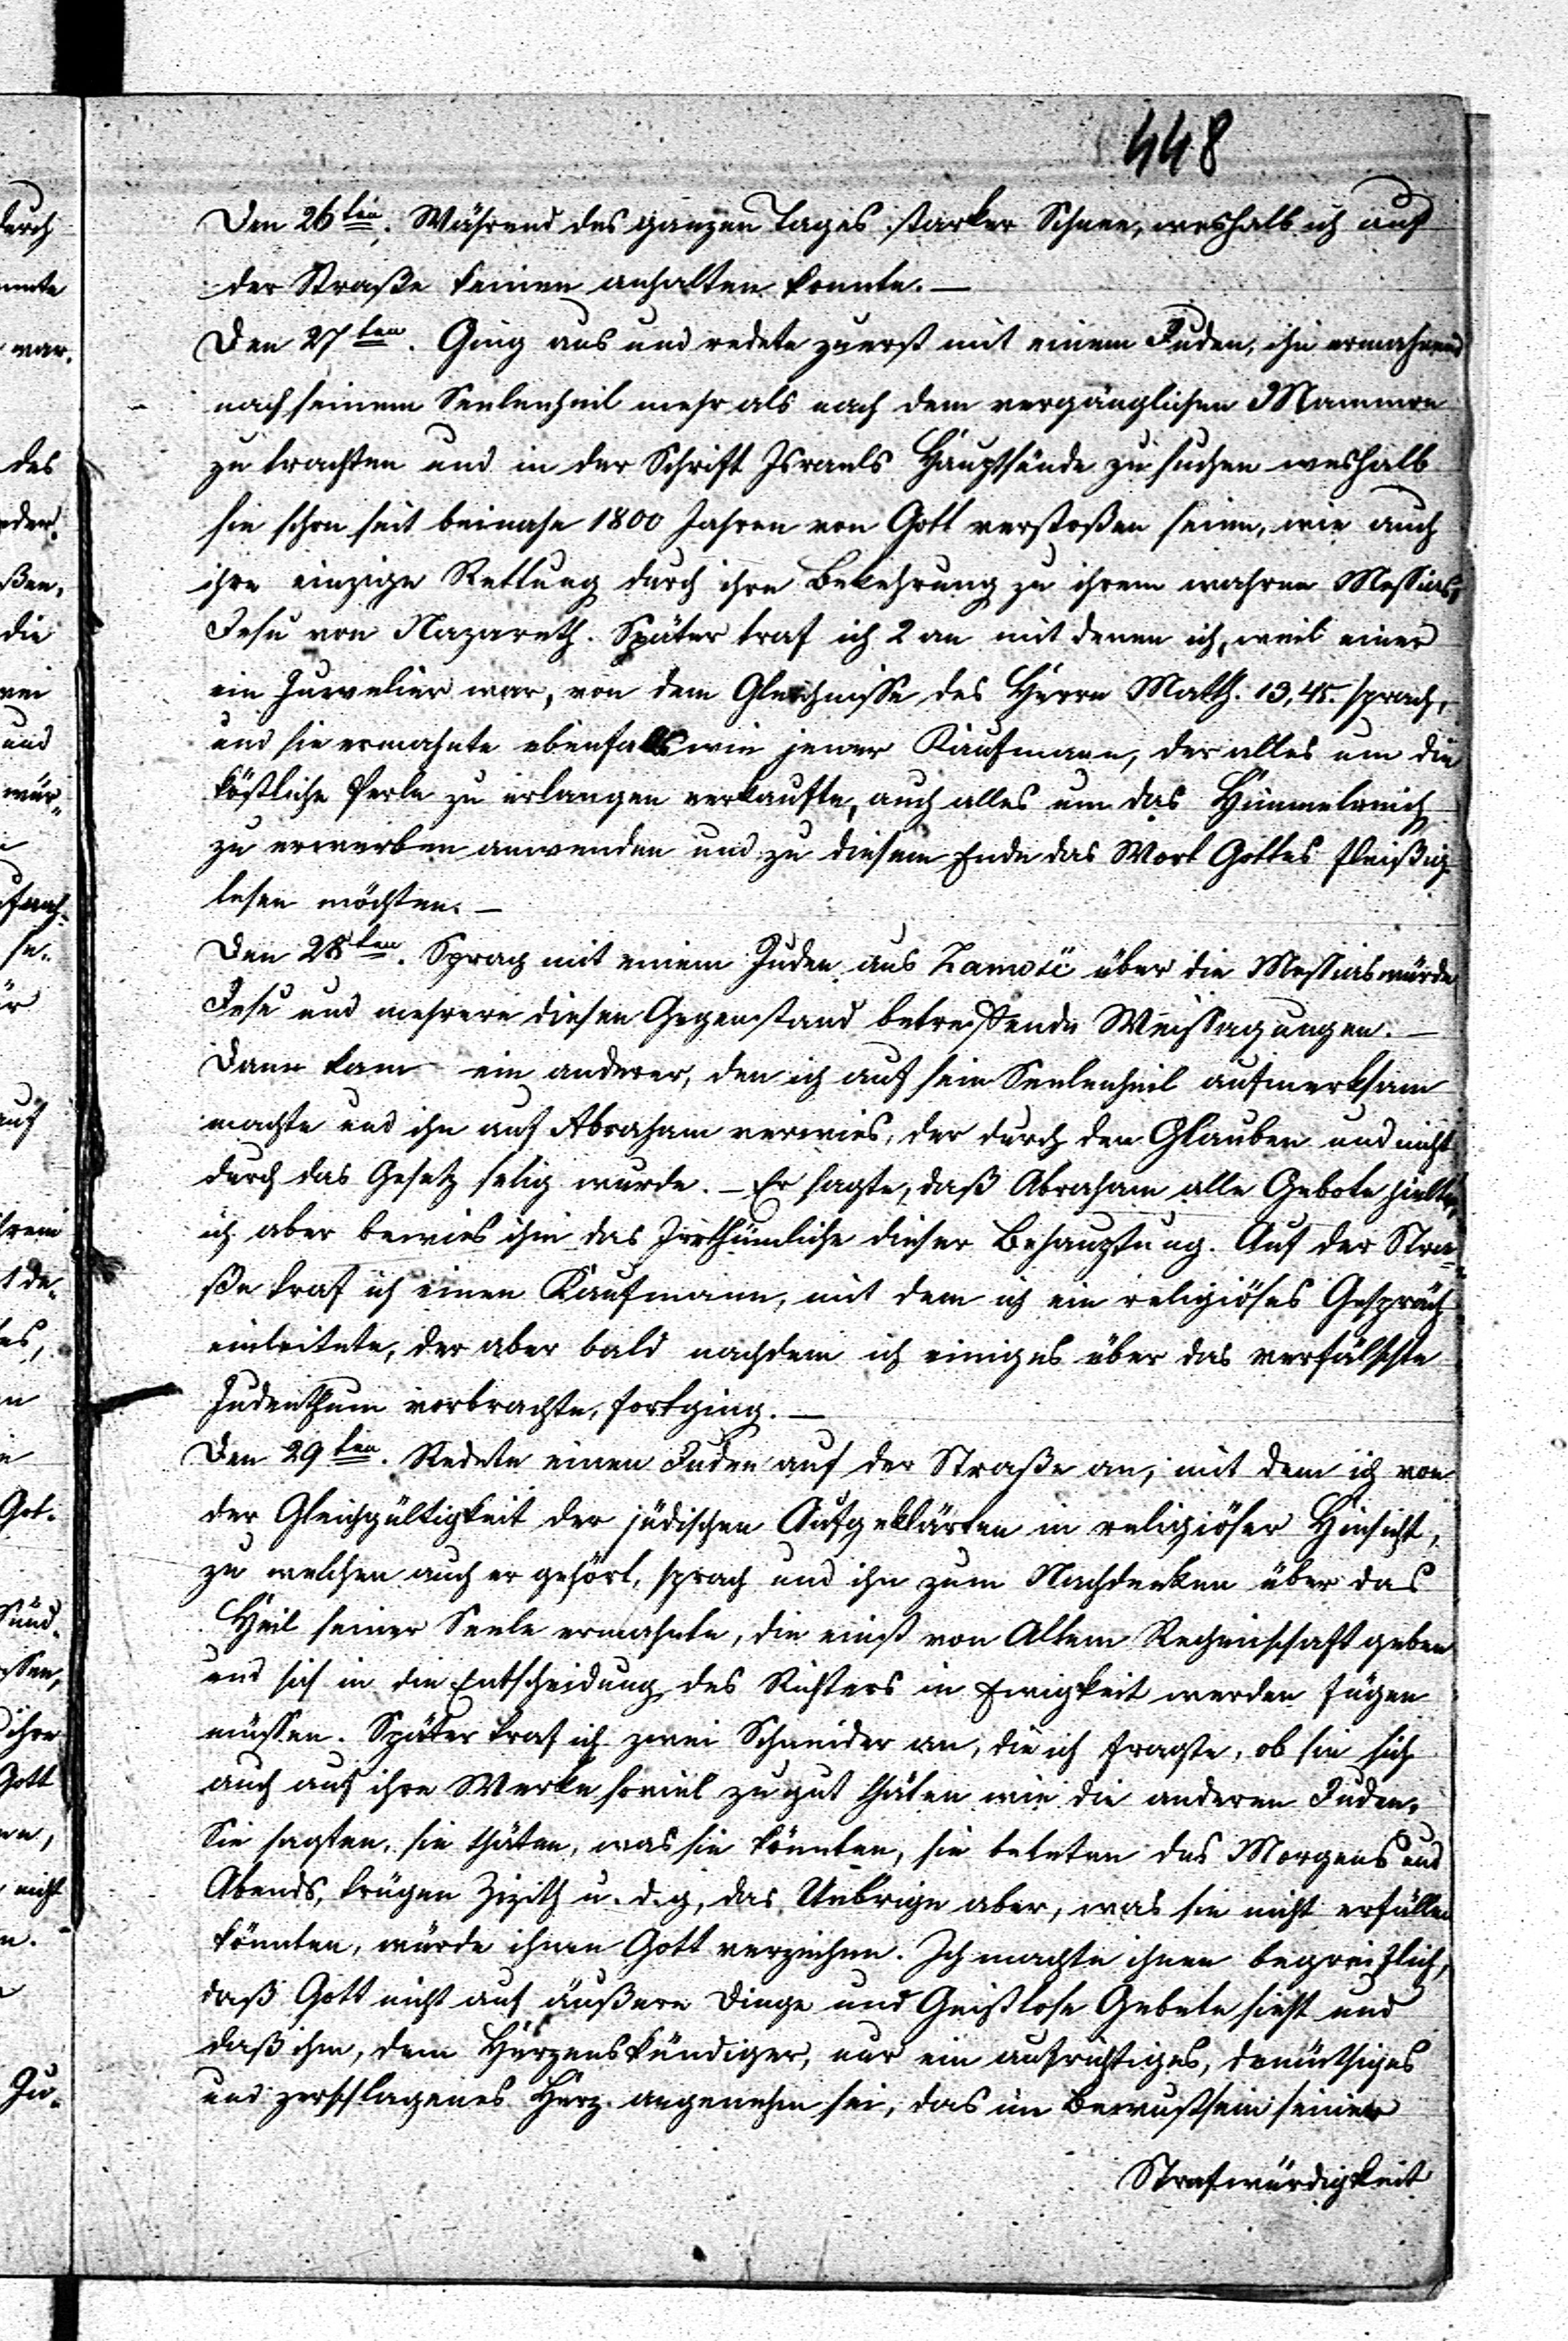 448
Den 26ten. Während des ganzen Tages starker Schnee, weshalb ich auf
der Straße keinen anhalten konnte. —
Den 27ten. Ging aus und redete zuerst mit einem Juden, ihn ermahnend
nach seinem Seelenheil mehr als nach dem vergänglichen Mammon
zu trachten und in der Schrift Israels Hauptsünde zu suchen weshalb
sie schon seit beinahe 1800 Jahren von Gott verstoßen seien, wie auch
ihre einzige Rettung durch ihre Bekehrung zu ihrem wahren Messias,
Jesu von Nazareth. Später traf ich 2 an mit denen ich, weil einer
ein Juwelier war, von dem Gleichnisse des Herrn Matth. 13,45. sprach,
und sie ermahnte ebenfalls wie jener Kaufmann, der alles um die
köstliche Perle zu erlangen verkaufte, auch alles um das Himmelreich
zu erwerben anwenden und zu diesem Ende das Wort Gottes fleißig
lesen möchten. —
Den 28ten. Sprach mit einem Juden aus Zamość über die Messiaswürde
Jesu und mehrere diesen Gegenstand betreffende Weissagungen. —
Dann kam ein anderer, den ich auf sein Seelenheil aufmerksam
machte und ihn auf Abraham verwies, der durch den Glauben und nicht
durch das Gesetz selig wurde. — Er sagte, daß Abraham alle Gebote hielte,
ich aber bewies ihm das Irrthümliche dieser Behauptung. Auf der Stra-
ße traf ich einen Kaufmann, mit dem ich ein religiöses Gespräch
einleitete, der aber bald nachdem ich einiges über das verfälschte
Judenthum vorbrachte, fortging. —
Den 29ten. Redete einen Juden auf der Straße an, mit dem ich von
der Gleichgültigkeit der jüdischen Aufgeklärten in religiöser Hinsicht,
zu welchen auch er gehört, sprach und ihn zum Nachdenken über das
Heil seiner Seele ermahnte, die einst von Allem Rechenschaft geben
und sich in die Entscheidung des Richters in Ewigkeit werden fügen
müssen. Später traf ich zwei Schneider an, die ich fragte, ob sie sich
auch auf ihre Werke soviel zu gut thäten wie die anderen Juden.
Sie sagten, sie thäten, was sie könnten, sie beteten des Morgens und
Abends, trügen Zizith u. d. g, das Uebrige aber, was sie nicht erfüllen
könnten, würde ihnen Gott verzeihen. Ich machte ihnen begreiflich,
daß Gott nicht auf äußere Dinge und Geistlose Gebete sieht und
daß ihm, dem Herzenskündiger, nur ein aufrichtiges, demüthiges
und zerschlagenes Herz angenehm sei, das im Bewußtsein seiner
Strafwürdigkeit